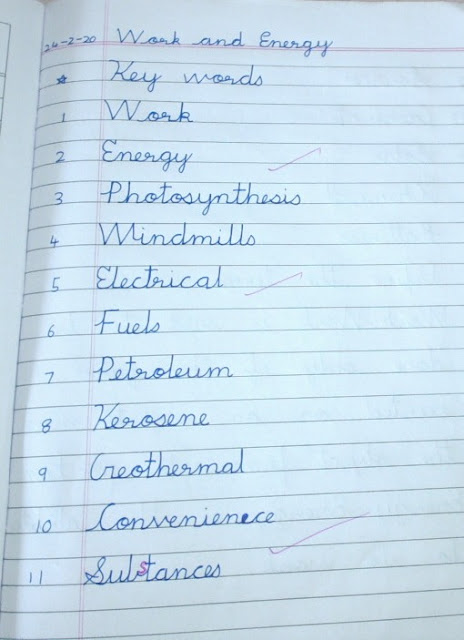 24-2-20 Work and Energy
* Key words
1 Work
2 Energy
3 Photosynthesis
4 Windmills
5 Electrical
6 Fuels
7 Petroleum
8 Kerosene
9 Geothermal
10 Convenienece
11 Substances